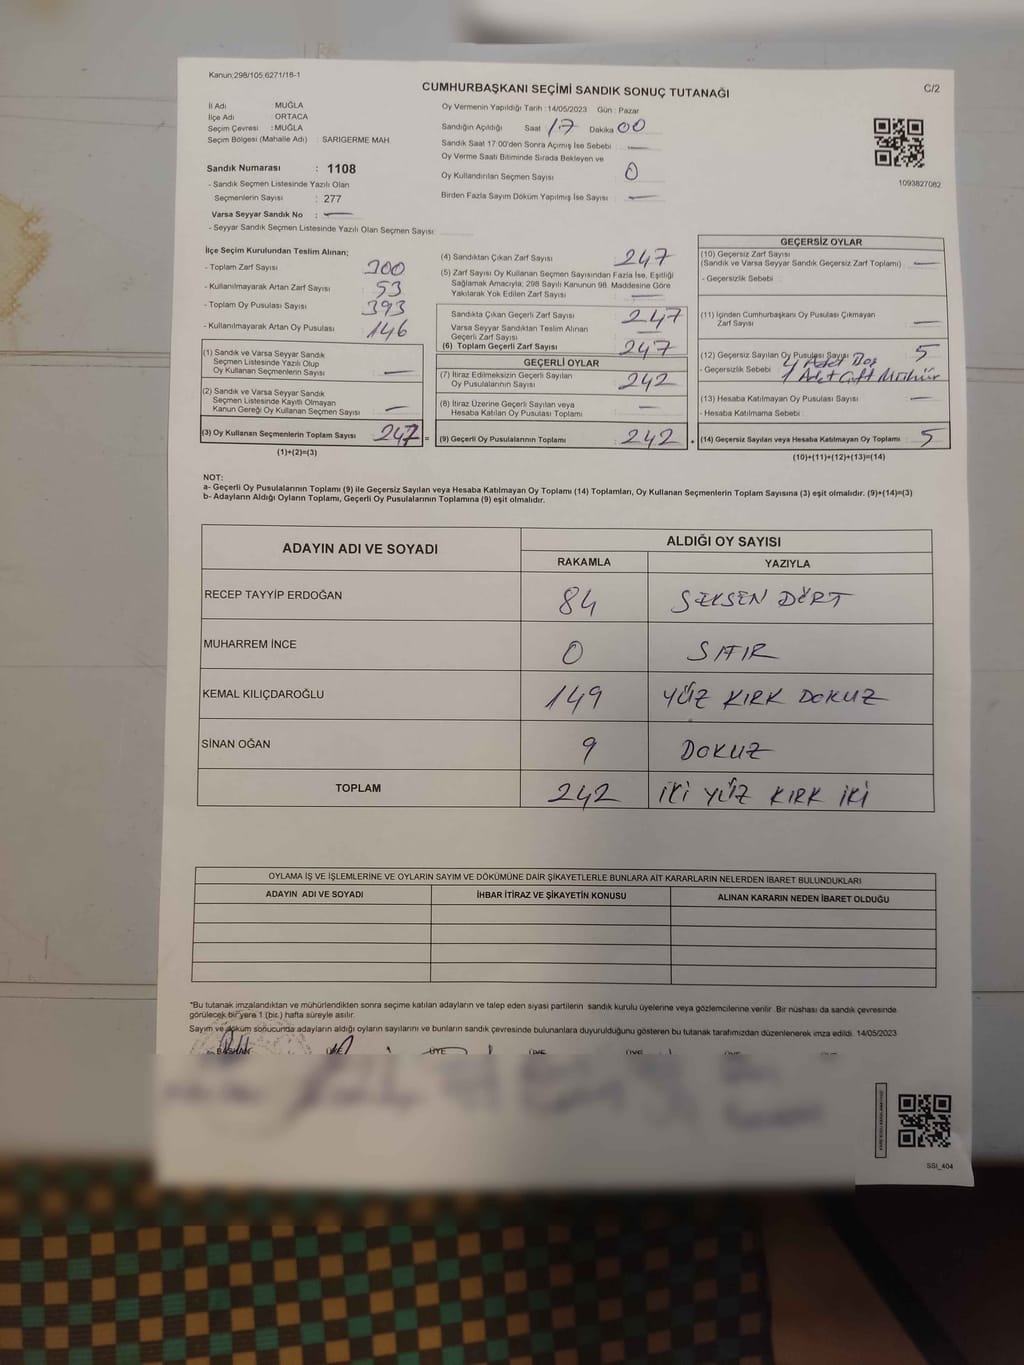 Kanun;298/105,6271/16-1
C/2
CUMHURBAŞKANI SEÇİMİ SANDIK SONUÇ TUTANAĞI
İl Adı : MUĞLA
İlçe Adı : ORTACA
Seçim Çevresi : MUĞLA
Seçim Bölgesi (Mahalle Adı) : SARIGERME MAH.
Sandık Numarası : 1108
- Sandık Seçmen Listesinde Yazılı Olan
Seçmenlerin Sayısı : 277
Varsa Seyyar Sandık No : —
- Seyyar Sandık Seçmen Listesinde Yazılı Olan Seçmen Sayısı:
Oy Vermenin Yapıldığı Tarih :14/05/2023 Gün : Pazar
Sandığın Açıldığı Saat 17 Dakika 00
Sandık Saat 17:00'den Sonra Açılmış İse Sebebi —
Oy Verme Saati Bitiminde Sırada Bekleyen ve
Oy Kullandırılan Seçmen Sayısı 0
Birden Fazla Sayım Döküm Yapılmış İse Sayısı —
1093827082
İlçe Seçim Kurulundan Teslim Alınan;
- Toplam Zarf Sayısı 300
- Kullanılmayarak Artan Zarf Sayısı 53
- Toplam Oy Pusulası Sayısı 393
- Kullanılmayarak Artan Oy Pusulası : 146
(1) Sandık ve Varsa Seyyar Sandık
Seçmen Listesinde Yazılı Olup
Oy Kullanan Seçmenlerin Sayısı : —
(2) Sandık ve Varsa Seyyar Sandık
Seçmen Listesinde Kayıtlı Olmayan
Kanun Gereği Oy Kullanan Seçmen Sayısı : —
(3) Oy Kullanan Seçmenlerin Toplam Sayısı 247 =
(1)+(2)=(3)
(4) Sandıktan Çıkan Zarf Sayısı 247
(5) Zarf Sayısı Oy Kullanan Seçmen Sayısından Fazla İse, Eşitliği
Sağlamak Amacıyla; 298 Sayılı Kanunun 98. Maddesine Göre
Yakılarak Yok Edilen Zarf Sayısı —
Sandıkta Çıkan Geçerli Zarf Sayısı : 247
Varsa Seyyar Sandıktan Teslim Alınan
Geçerli Zarf Sayısı —
(6) Toplam Geçerli Zarf Sayısı 247
GEÇERLİ OYLAR
(7) İtiraz Edilmeksizin Geçerli Sayılan
Oy Pusulalarının Sayısı : 242
(8) İtiraz Üzerine Geçerli Sayılan veya
Hesaba Katılan Oy Pusulası Toplamı —
(9) Geçerli Oy Pusulalarının Toplamı : 242 +
GEÇERSİZ OYLAR
(10) Geçersiz Zarf Sayısı
(Sandık ve Varsa Seyyar Sandık Geçersiz Zarf Toplamı) : —
- Geçersizlik Sebebi :
(11) İçinden Cumhurbaşkanı Oy Pusulası Çıkmayan
Zarf Sayısı —
(12) Geçersiz Sayılan Oy Pusulası Sayısı 5
- Geçersizlik Sebebi : 4 Adet Boş
1 Adet Çift Mühür
(13) Hesaba Katılmayan Oy Pusulası Sayısı : —
- Hesaba Katılmama Sebebi :
(14) Geçersiz Sayılan veya Hesaba Katılmayan Oy Toplamı : 5
(10)+(11)+(12)+(13)=(14)
NOT:
a- Geçerli Oy Pusulalarının Toplamı (9) ile Geçersiz Sayılan veya Hesaba Katılmayan Oy Toplamı (14) Toplamları, Oy Kullanan Seçmenlerin Toplam Sayısına (3) eşit olmalıdır. (9)+(14)=(3)
b- Adayların Aldığı Oyların Toplamı, Geçerli Oy Pusulalarının Toplamına (9) eşit olmalıdır.
ADAYIN ADI VE SOYADI ALDIĞI OY SAYISI
RAKAMLA YAZIYLA
RECEP TAYYİP ERDOĞAN 84 SEKSEN DÖRT
MUHARREM İNCE 0 SIFIR
KEMAL KILIÇDAROĞLU 149 YÜZ KIRK DOKUZ
SİNAN OĞAN 9 DOKUZ
TOPLAM 242 İKİ YÜZ KIRK İKİ
OYLAMA İŞ VE İŞLEMLERİNE VE OYLARIN SAYIM VE DÖKÜMÜNE DAİR ŞİKAYETLERLE BUNLARA AİT KARARLARIN NELERDEN İBARET BULUNDUKLARI
ADAYIN ADI VE SOYADI İHBAR İTİRAZ VE ŞİKAYETİN KONUSU ALINAN KARARIN NEDEN İBARET OLDUĞU
*Bu tutanak imzalandıktan ve mühürlendikten sonra seçime katılan adayların ve talep eden siyasi partilerin sandık kurulu üyelerine veya gözlemcilerine verilir. Bir nüshası da sandık çevresinde
görülecek bir yere 1 (bir) hafta süreyle asılır.
Sayım ve döküm sonucunda adayların aldığı oyların sayılarını ve bunların sandık çevresinde bulunanlara duyurulduğunu gösteren bu tutanak tarafımızdan düzenlenerek imza edildi. 14/05/2023
BAŞKAN ÜYE ÜYE ÜYE ÜYE
SSI_404